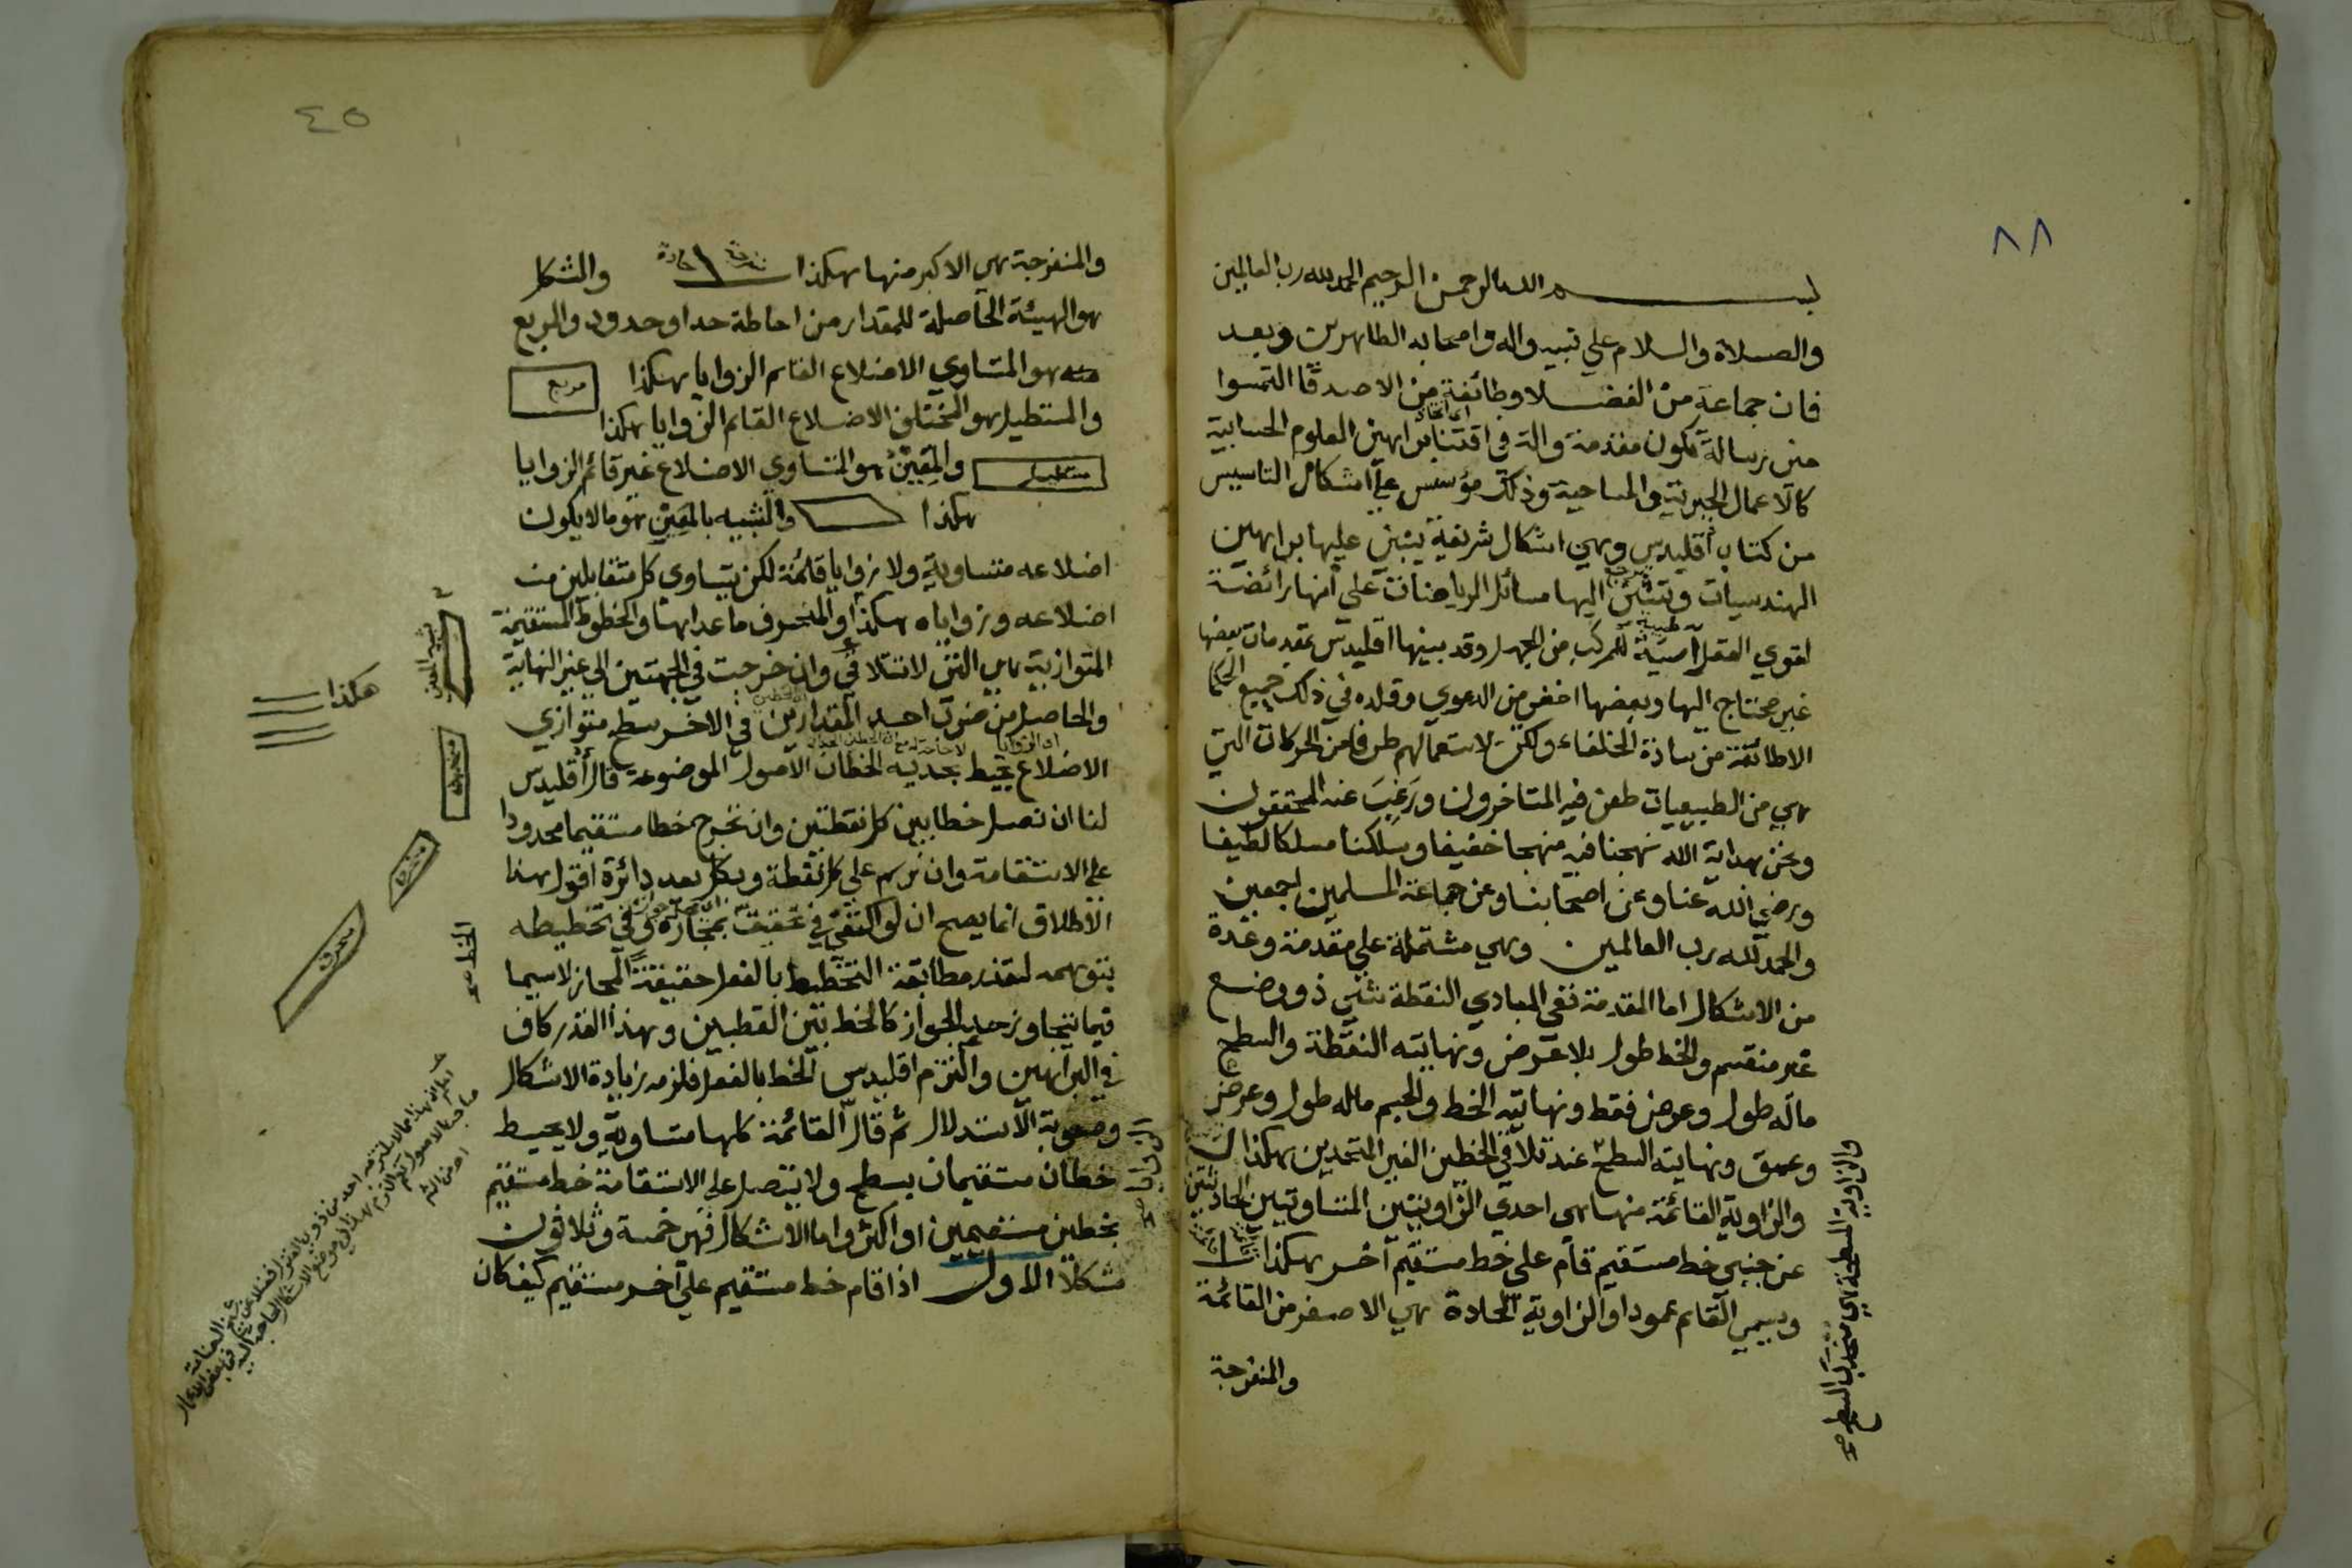 ٨٨
بسم الله الرحمن الرحيم الحمد لله رب العالمين
والصلاة والسلام علي نبيه واله واصحابه الطاهرين وبعد
فان جماعة من الفضلا وطائفة من الاصدقا التمسوا
مني رسالة تكون مقدمة والة في اقتنا براهين العلوم الحسابية
كالاعمال الجبرية والمساحية وذلك مؤسس علي اشكال التاسيس
من كتاب اقليدس وهي اشكال شريفة يبتني عليها براهين
الهندسيات وتنثني اليها مسائل الرياضيات علي انها رائضة
لقوي العقل للمركب من الجهل وقد بينها اقليدس بمقدمات بعضها
غير محتاج اليها وبعضها اخفي من الدعوي وقلده في ذلك جميع الحكما
الا طائفة من سادة الخلفاء ولكن لاستعمالهم طرفا من الحركات التي
هي من الطبيعيات طعن فيه المتاخرون ورغب عنه المحققون
ونحن بهداية الله نهجنا فيه منهجا خفيفا وسلكنا مسلكا لطيفا
ورضي الله عنا وعن اصحابنا وعن جماعة المسلمين اجمعين
والحمد لله رب العالمين وهي مشتملة علي مقدمة وعدة
من الاشكال اما المقدمة ففي المبادي النقطة شئ ذو وضع
غير منقسم والخط طول بلا عرض ونهايته النقطة والسطح
ماله طول وعرض فقط ونهايته الخط والجسم ماله طول وعرض
وعمق ونهايته السطح عند تلاقي الخطين الغير المتحدين هكذا
والزاوية القائمة منها هي احدي الزاويتين المتساويتين الحادثتين
عن جنبي خط مستقيم قام علي خط مستقيم آخر هكذا
ويسمي القائم عمودا والزاوية الحادة هي الاصغر من القائمة
والمنفرجة
والزاوية المسطحة هي السطح
٤٥
والمنفرجة هي الاكبر منها هكذا منفرجة حادة والشكل
هو الهيئة الحاصلة للمقدار من احاطة حد او حدود والمربع
منه هو المتساوي الاضلاع القائم الزوايا هكذا مربع
والمستطيل هو المختلف الاضلاع القائم الزوايا هكذا
مستطيل والمعين هو المتساوي الاضلاع غير قائم الزوايا
هكذا والشبيه بالمعين هو ما لا يكون
اضلاعه متساوية ولا زواياه قائمة لكن يتساوي كل متقابلين من
اضلاعه وزواياه هكذا والمنحرف ما عداهما والخطوط المستقيمة
المتوازية هي التي لا تتلاقي وان خرجت في الجهتين الي غير النهاية
والحاصل من ضرب احد المقدارين في الاخر سطح متوازي
الاضلاع يحيط بحديه الخطان الاصول الموضوعة قال اقليدس
لنا ان نصل خطا بين كل نقطتين وان نخرج خطا مستقيما محدودا
علي الاستقامة وان نرسم علي كل نقطة وبكل بعد دائرة اقول هذا
الاطلاق انما يصح ان لو اكتفي في تحقيقه بمجازه وفي تخطيطه
بتوهمه لتعذر مطابقة التخطيط بالفعل حقيقة المجاز لاسيما
فيما يتجاوز حد الجواز كالخط بين القطبين وهذا القدر كاف
في البراهين والتزم اقليدس الخط بالفعل فلزمه زيادة الاشكال
وصعوبة الاستدلال ثم قال القائمة كلها متساوية ولا يحيط
خطان مستقيمان بسطح ولا يتصل علي الاستقامة خط مستقيم
بخطين مستقيمين او اكثر واما الاشكال فهي خمسة وثلاثون
شكلا الاول اذا قام خط مستقيم علي آخر مستقيم كيف كان
شبيه المعين
هكذا
منحرف
منحرف
منحرف